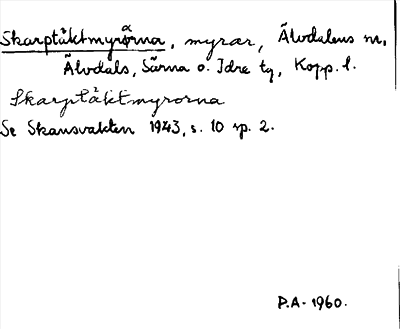 Skarptåktmyrårna, myrar, Älvdalens m.
Älvdals, Särna o. Idre tg, Kopp. l.
Skarptåktmyrorna
Se Skansvakten 1943, s. 10 sp. 2.
P.A. 1960.